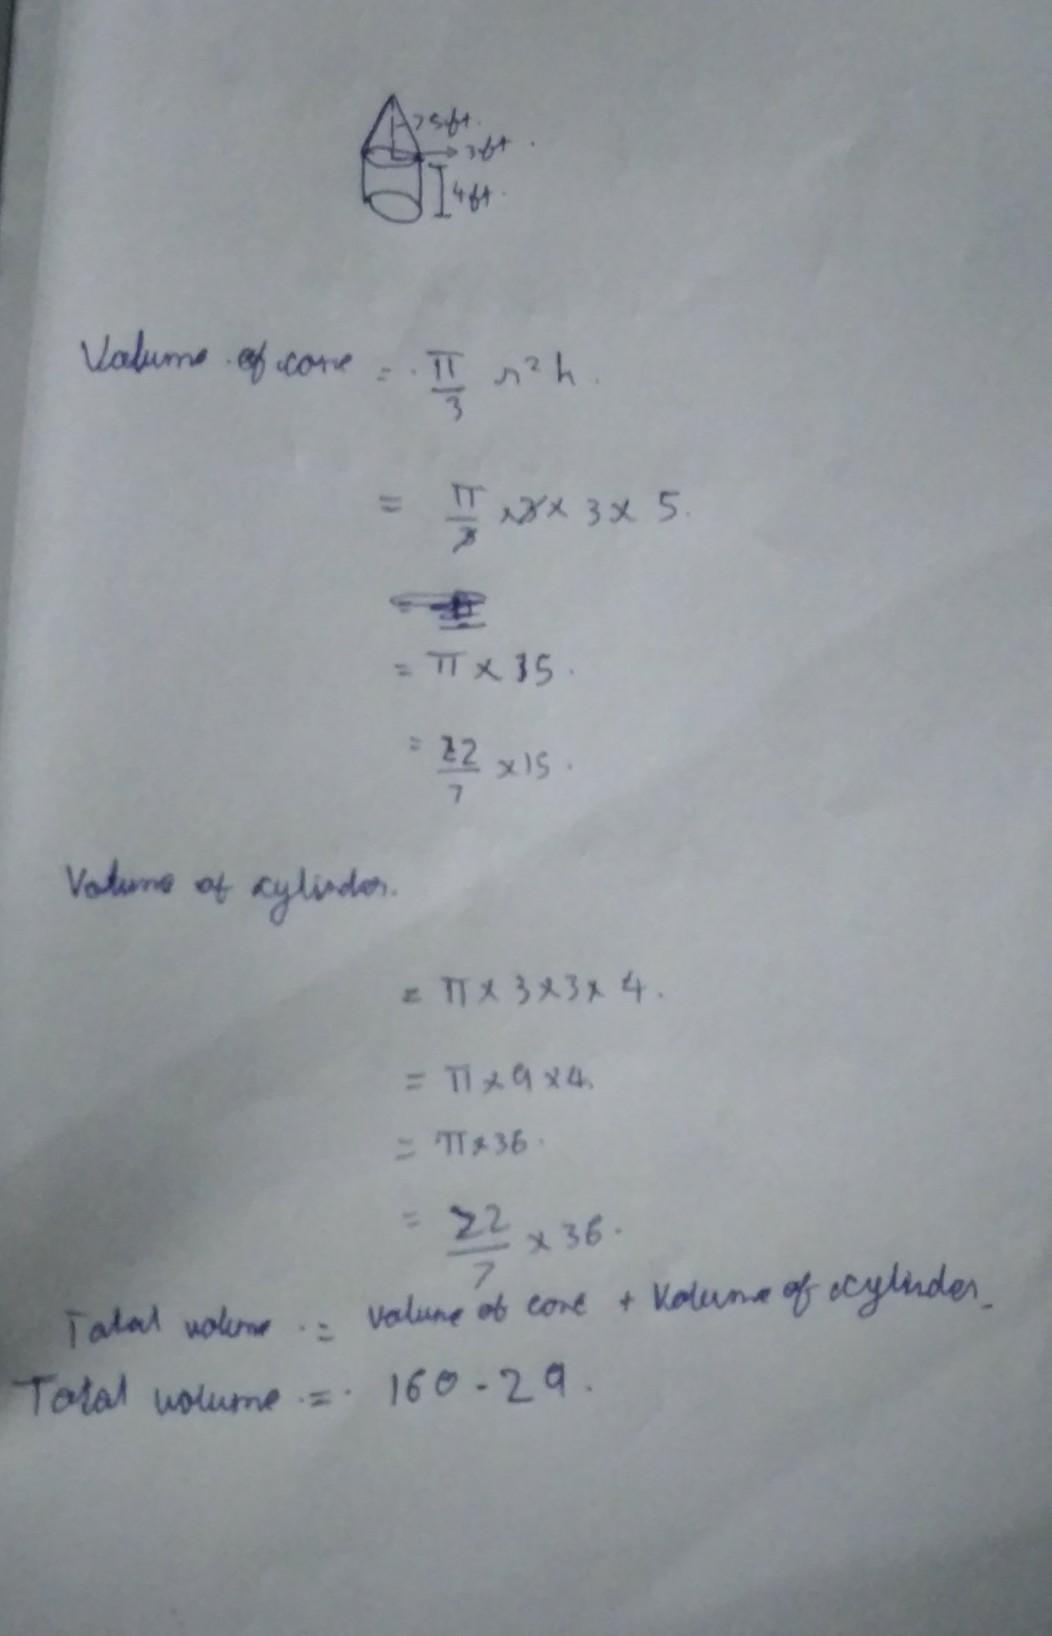 5ft.
3ft.
4ft.
Volume of cone = π/3 r²h.
= π/3 × 3 × 3 × 5.
= π × 15.
= 22/7 × 15.
Volume of cylinder.
= π × 3 × 3 × 4.
= π × 9 × 4.
= π × 36.
= 22/7 × 36.
Total volume = Volume of cone + Volume of cylinder.
Total volume = 160.29.